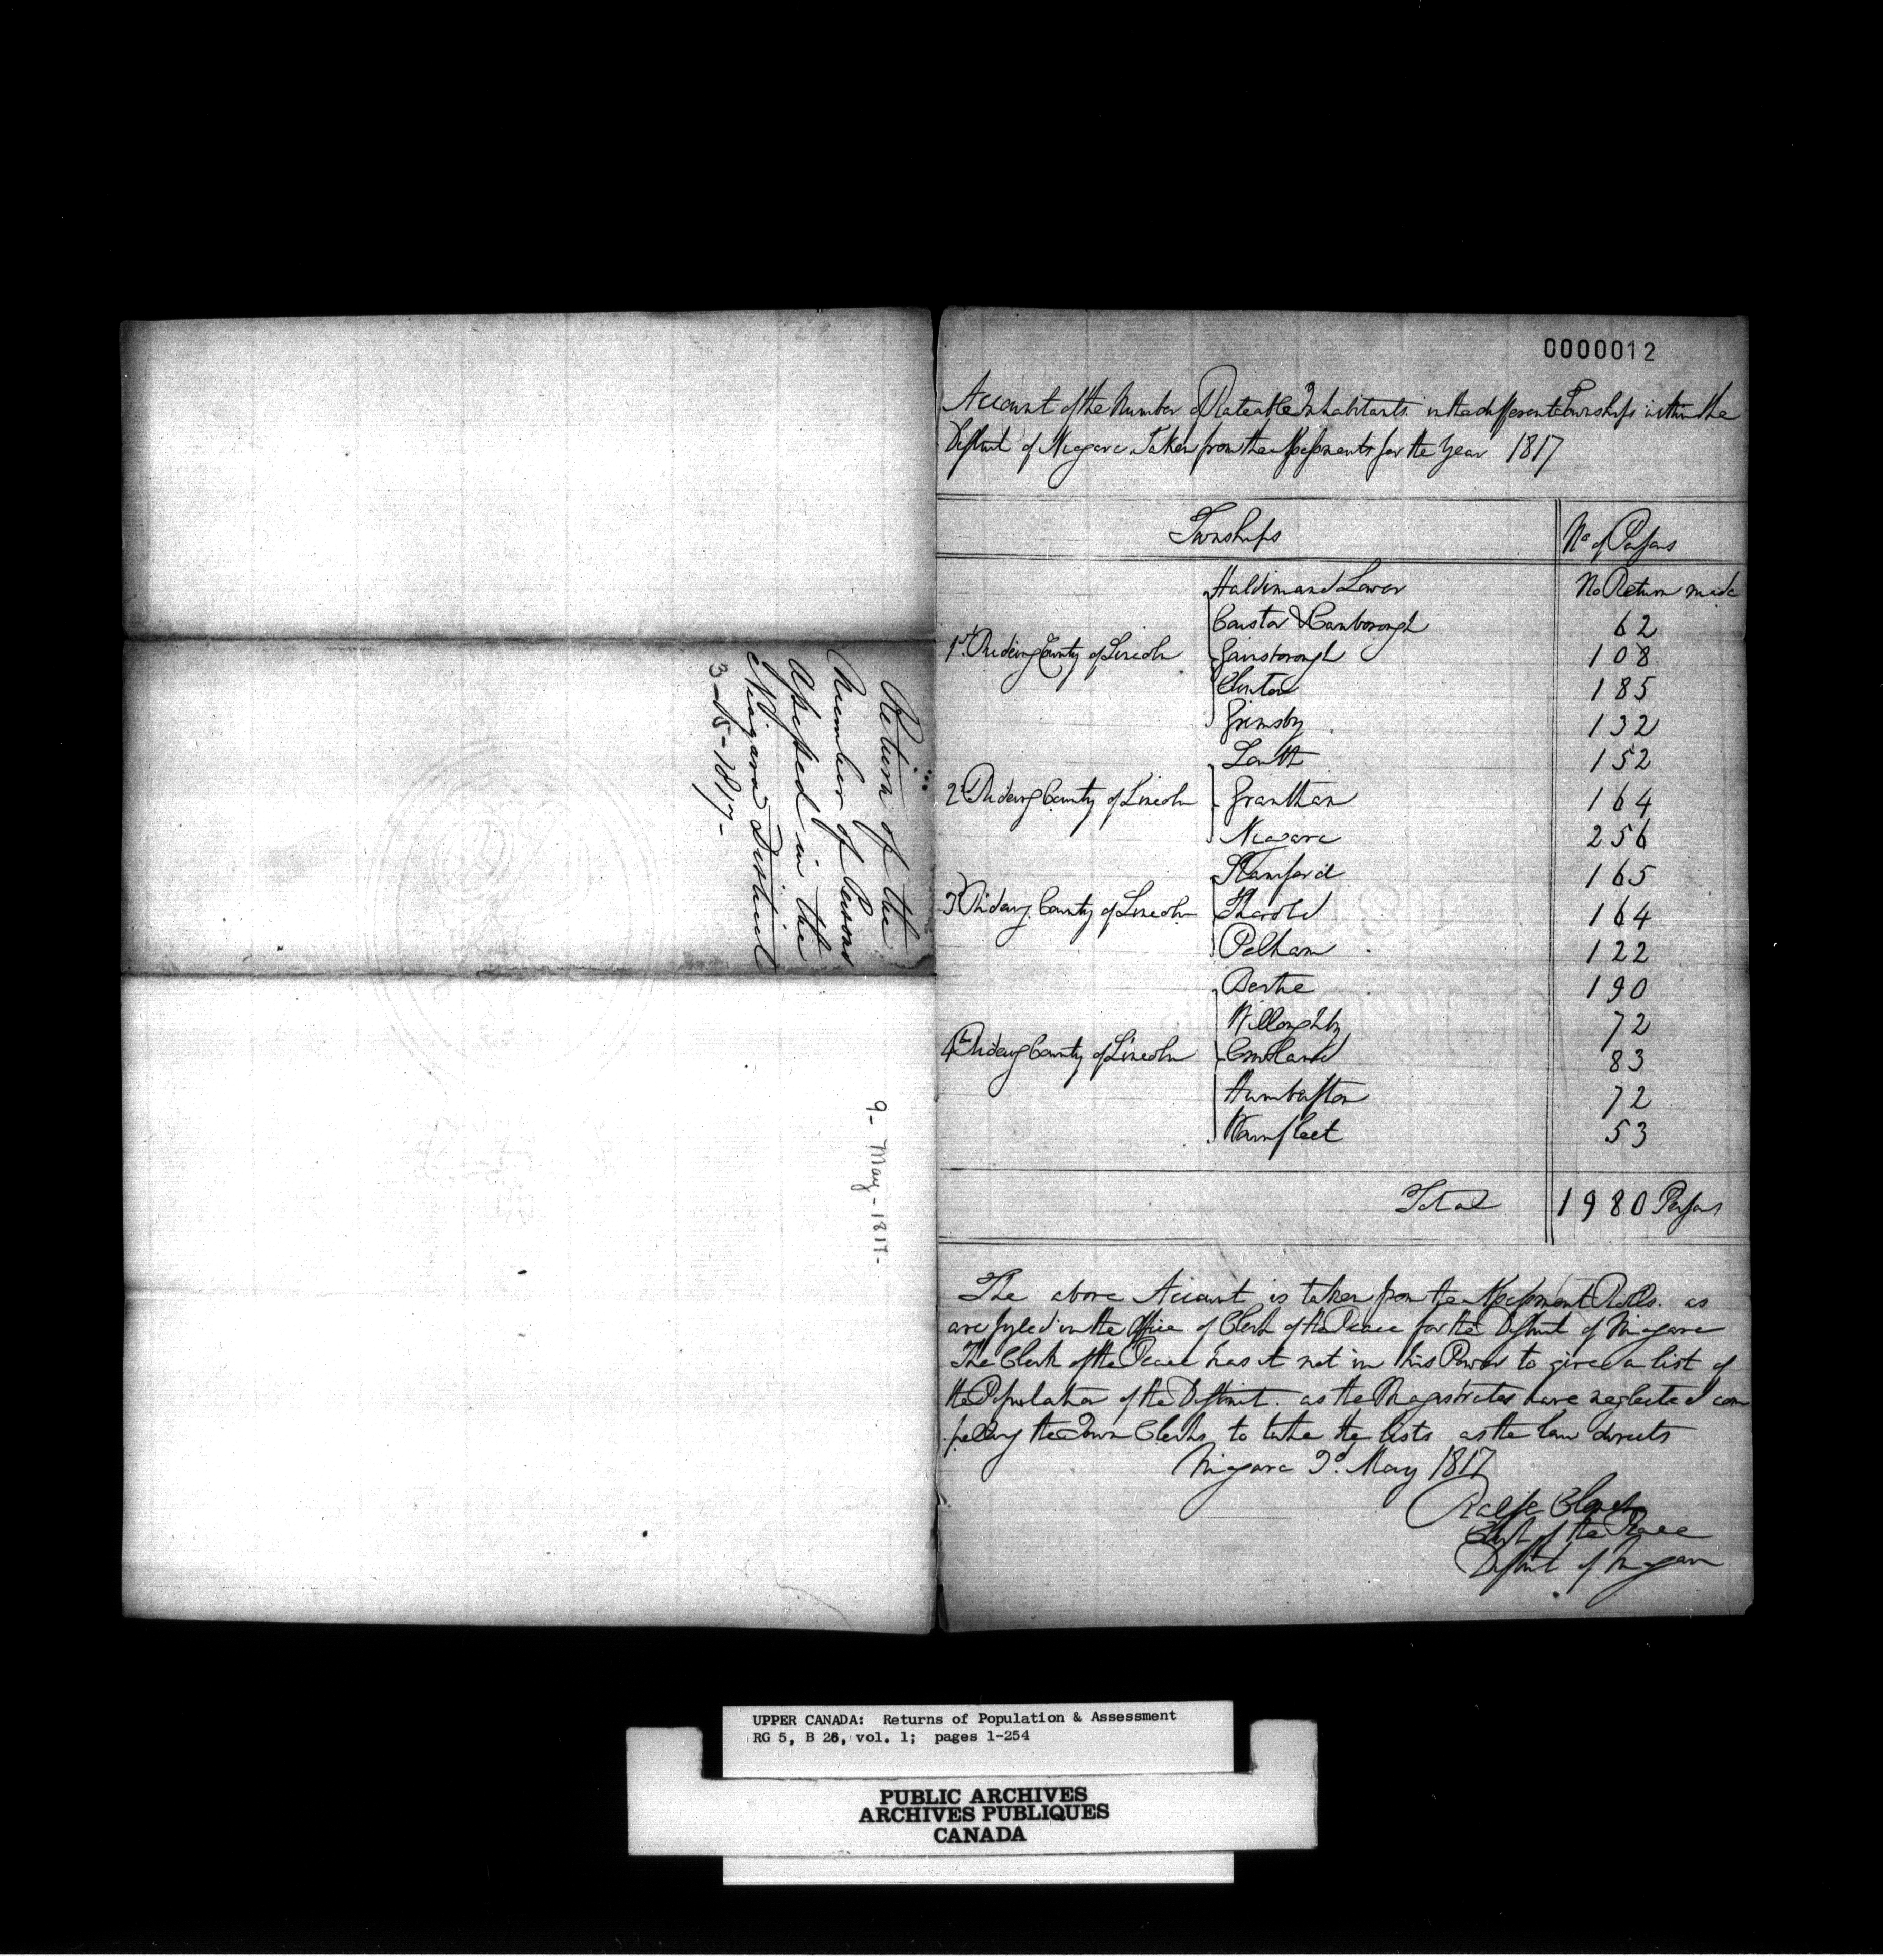 Return of the
Number of Persons
Assessed in the
Niagara District
3-15-1817-
9- May - 1817-
0000012
Account of the Number of Rateable Inhabitants in the different Townships within the
District of Niagara Taken from the Assessments for the Year 1817
Townships
No of Persons
Haldimand Lower No Return made
Caistor & Canborough 62
1st Riding County of Lincoln Gainsborough 108
Clinton 185
Grimsby 132
Louth 152
2d Riding County of Lincoln Grantham 164
Niagara 256
Stamford 165
3d Riding County of Lincoln Thorold 164
Pelham 122
Bertie 190
Willoughby 72
4th Riding County of Lincoln Crowland 83
Humberston 72
Wainfleet 53
Total 1980 Persons
The above Account is taken from the Assessment Rolls as
are fyled in the Office of Clerk of the Peace for the District of Niagara
The Clerk of the Peace has it not in his Power to give a list of
the Population of the District as the Magistrates have neglected com
pelling the Town Clerks to take the lists as the law directs
Niagara 9d. May 1817
Ralfe Clench
Clerk of the Peace
District of Niagara
UPPER CANADA: Returns of Population & Assessment
RG 5, B 26, vol. 1; pages 1-254
PUBLIC ARCHIVES
ARCHIVES PUBLIQUES
CANADA